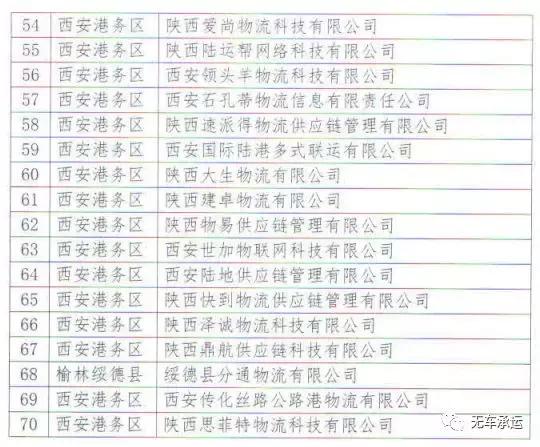 54 西安港务区 陕西爱尚物流科技有限公司
55 西安港务区 陕西陆运帮网络科技有限公司
56 西安港务区 西安领头羊物流科技有限公司
57 西安港务区 西安石孔蒂物流信息有限责任公司
58 西安港务区 陕西速派得物流供应链管理有限公司
59 西安港务区 西安国际陆港多式联运有限公司
60 西安港务区 陕西大生物流有限公司
61 西安港务区 陕西建卓物流有限公司
62 西安港务区 陕西物易供应链管理有限公司
63 西安港务区 西安世加物联网科技有限公司
64 西安港务区 西安陆地供应链管理有限公司
65 西安港务区 陕西快到物流供应链管理有限公司
66 西安港务区 陕西泽诚物流科技有限公司
67 西安港务区 陕西鼎航供应链科技有限公司
68 榆林绥德县 绥德县分通物流有限公司
69 西安港务区 西安传化丝路公路港物流有限公司
70 西安港务区 陕西思菲特物流科技有限公司
无车承运